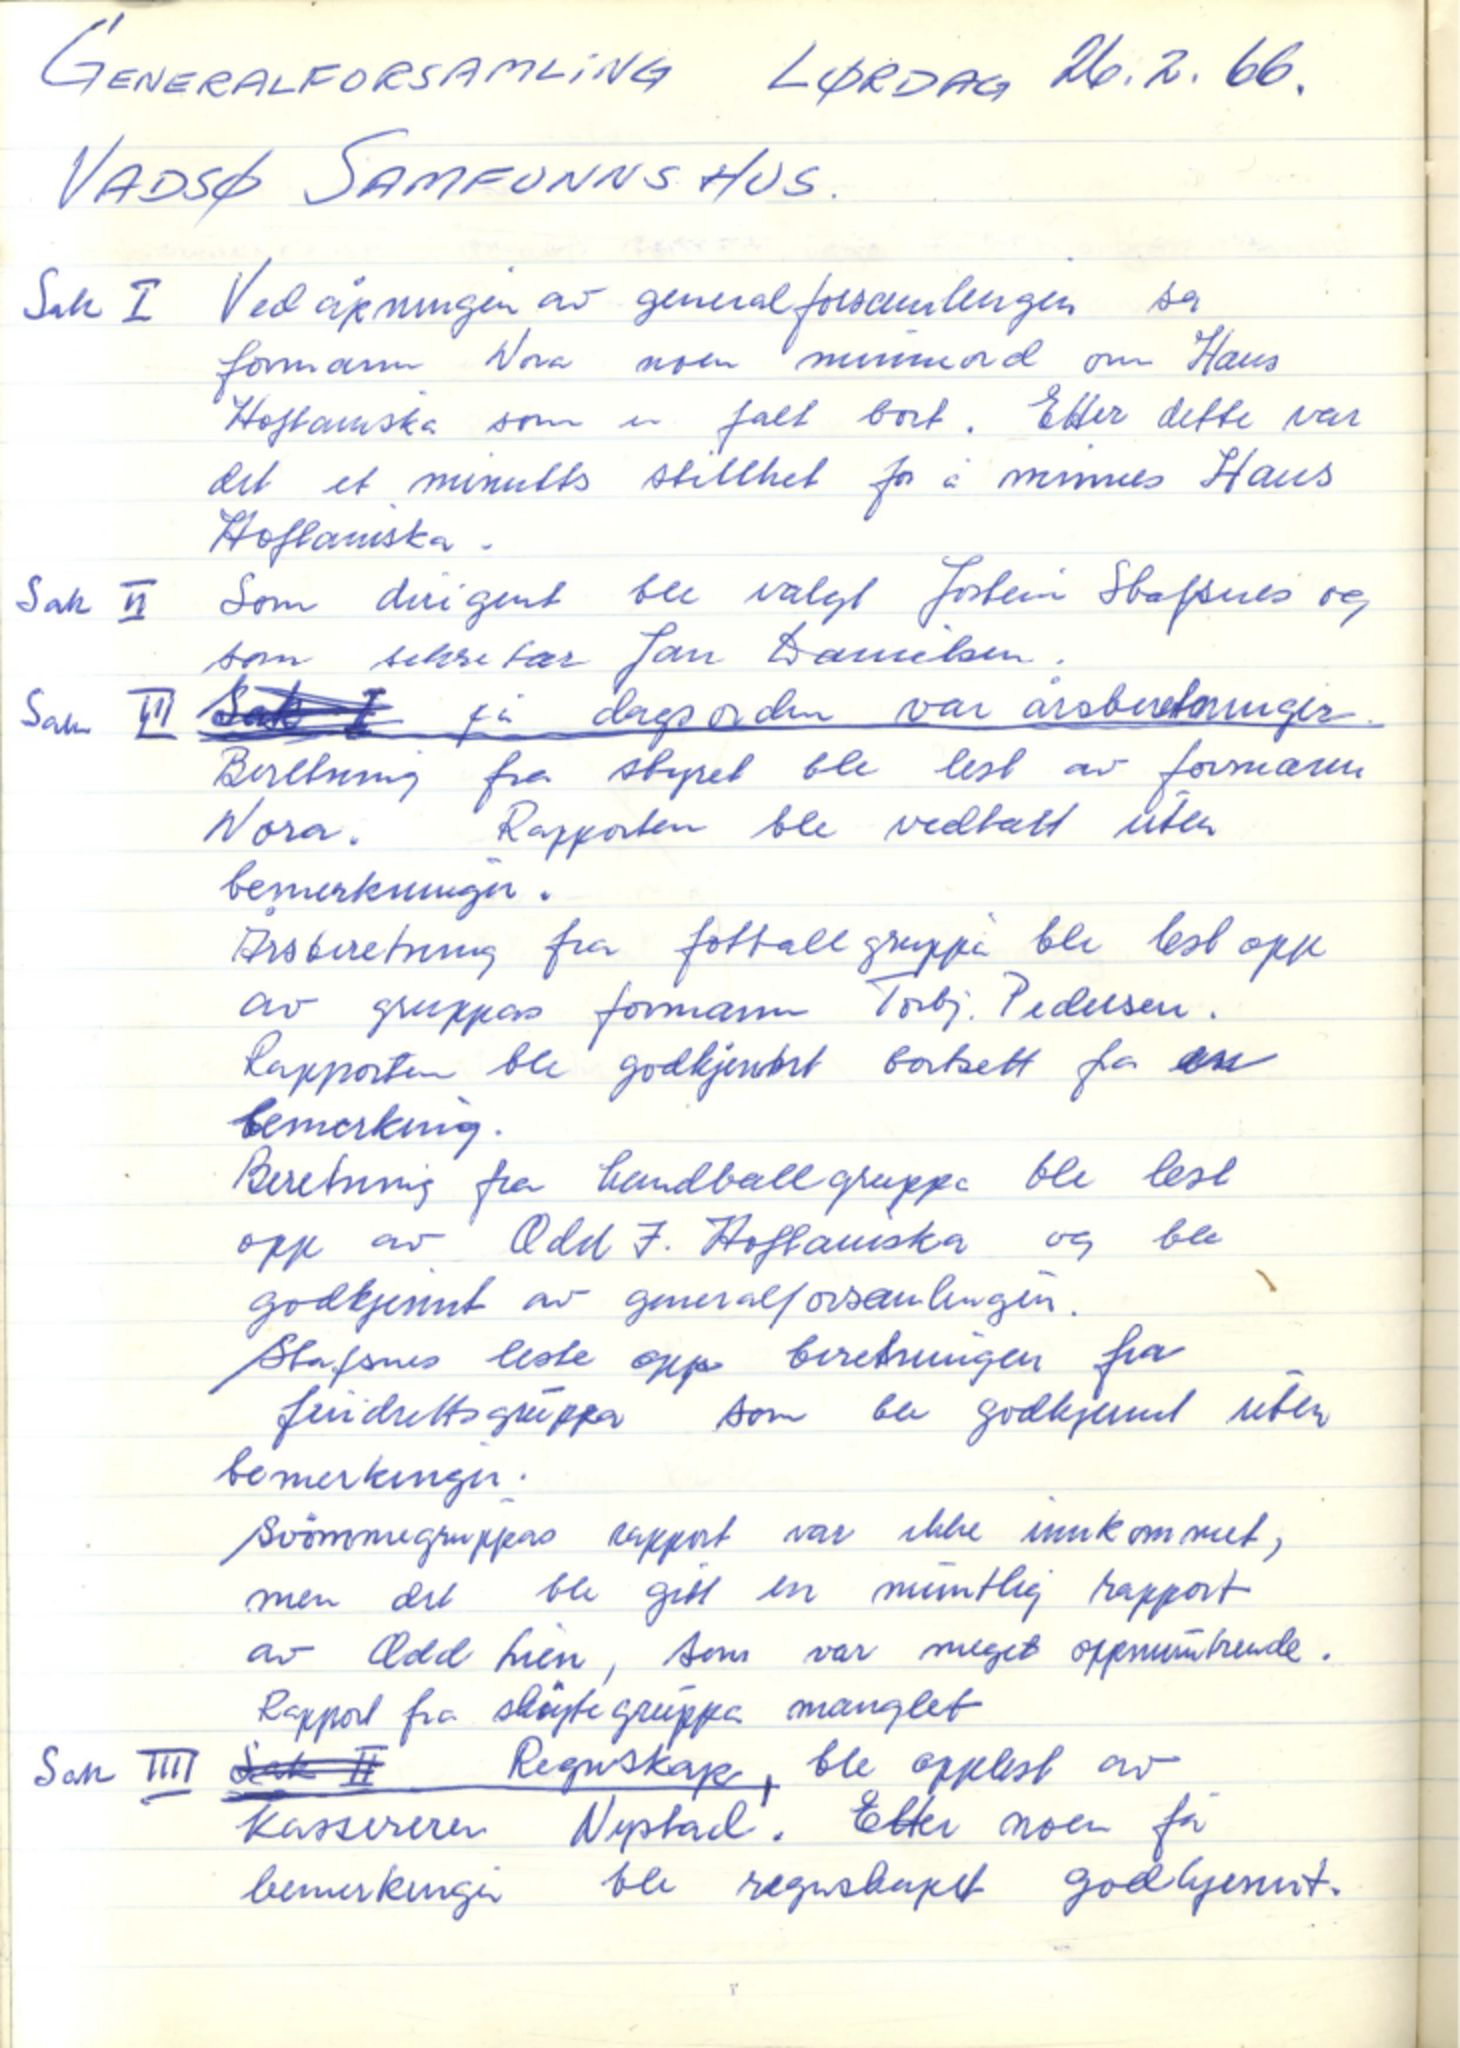 GENERALFORSAMLING LØRDAG 26.2.66.
VADSØ SAMFUNNSHUS.
Sak I Ved åpningen av generalforsamlingen sa
formann Wora noen minneord om Hans
Hoflamska som er falt bort. Etter dette var
det et minutts stillhet for å minnes Hans
Hoflamska.
Sak II Som dirigent ble valgt Jostein Stafsnes og
som sekretær Jan Danielsen.
Sak III Sak I på dagsorden var årsberetninger.
Beretning fra styret ble lest av formann
Wora. Rapporten ble vedtatt uten
bemerkninger.
Årsberetning fra fotballgruppa ble lest opp
av gruppas formann Torbj. Pedersen.
Rapporten ble godkjennt bortsett fra en
bemerking.
Beretning fra handballgruppa ble lest
opp av Odd J. Hoflamska og ble
godkjennt av generalforsamlingen.
Stafsnes leste opp beretningen fra
friidrettsgruppa som ble godkjennt uten
bemerkinger.
Svömmegruppas rapport var ikke innkommet,
men det ble gitt en muntlig rapport
av Odd Lien, som var meget oppmuntrende.
Rapport fra skøytegruppa manglet
Sak IIII Sak II Regnskap, ble opplest av
kassereren Nystad. Etter noen få
bemerkinger ble regnskapet godkjennt.